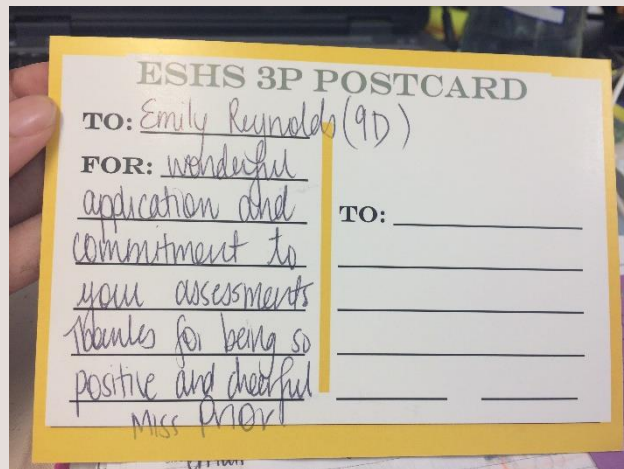 ESHS 3P POSTCARD
TO: Emily Reynolds (9D)
FOR: wonderful
application and
commitment to
your assessments
Thanks for being so
positive and cheerful
Miss Prior
TO: